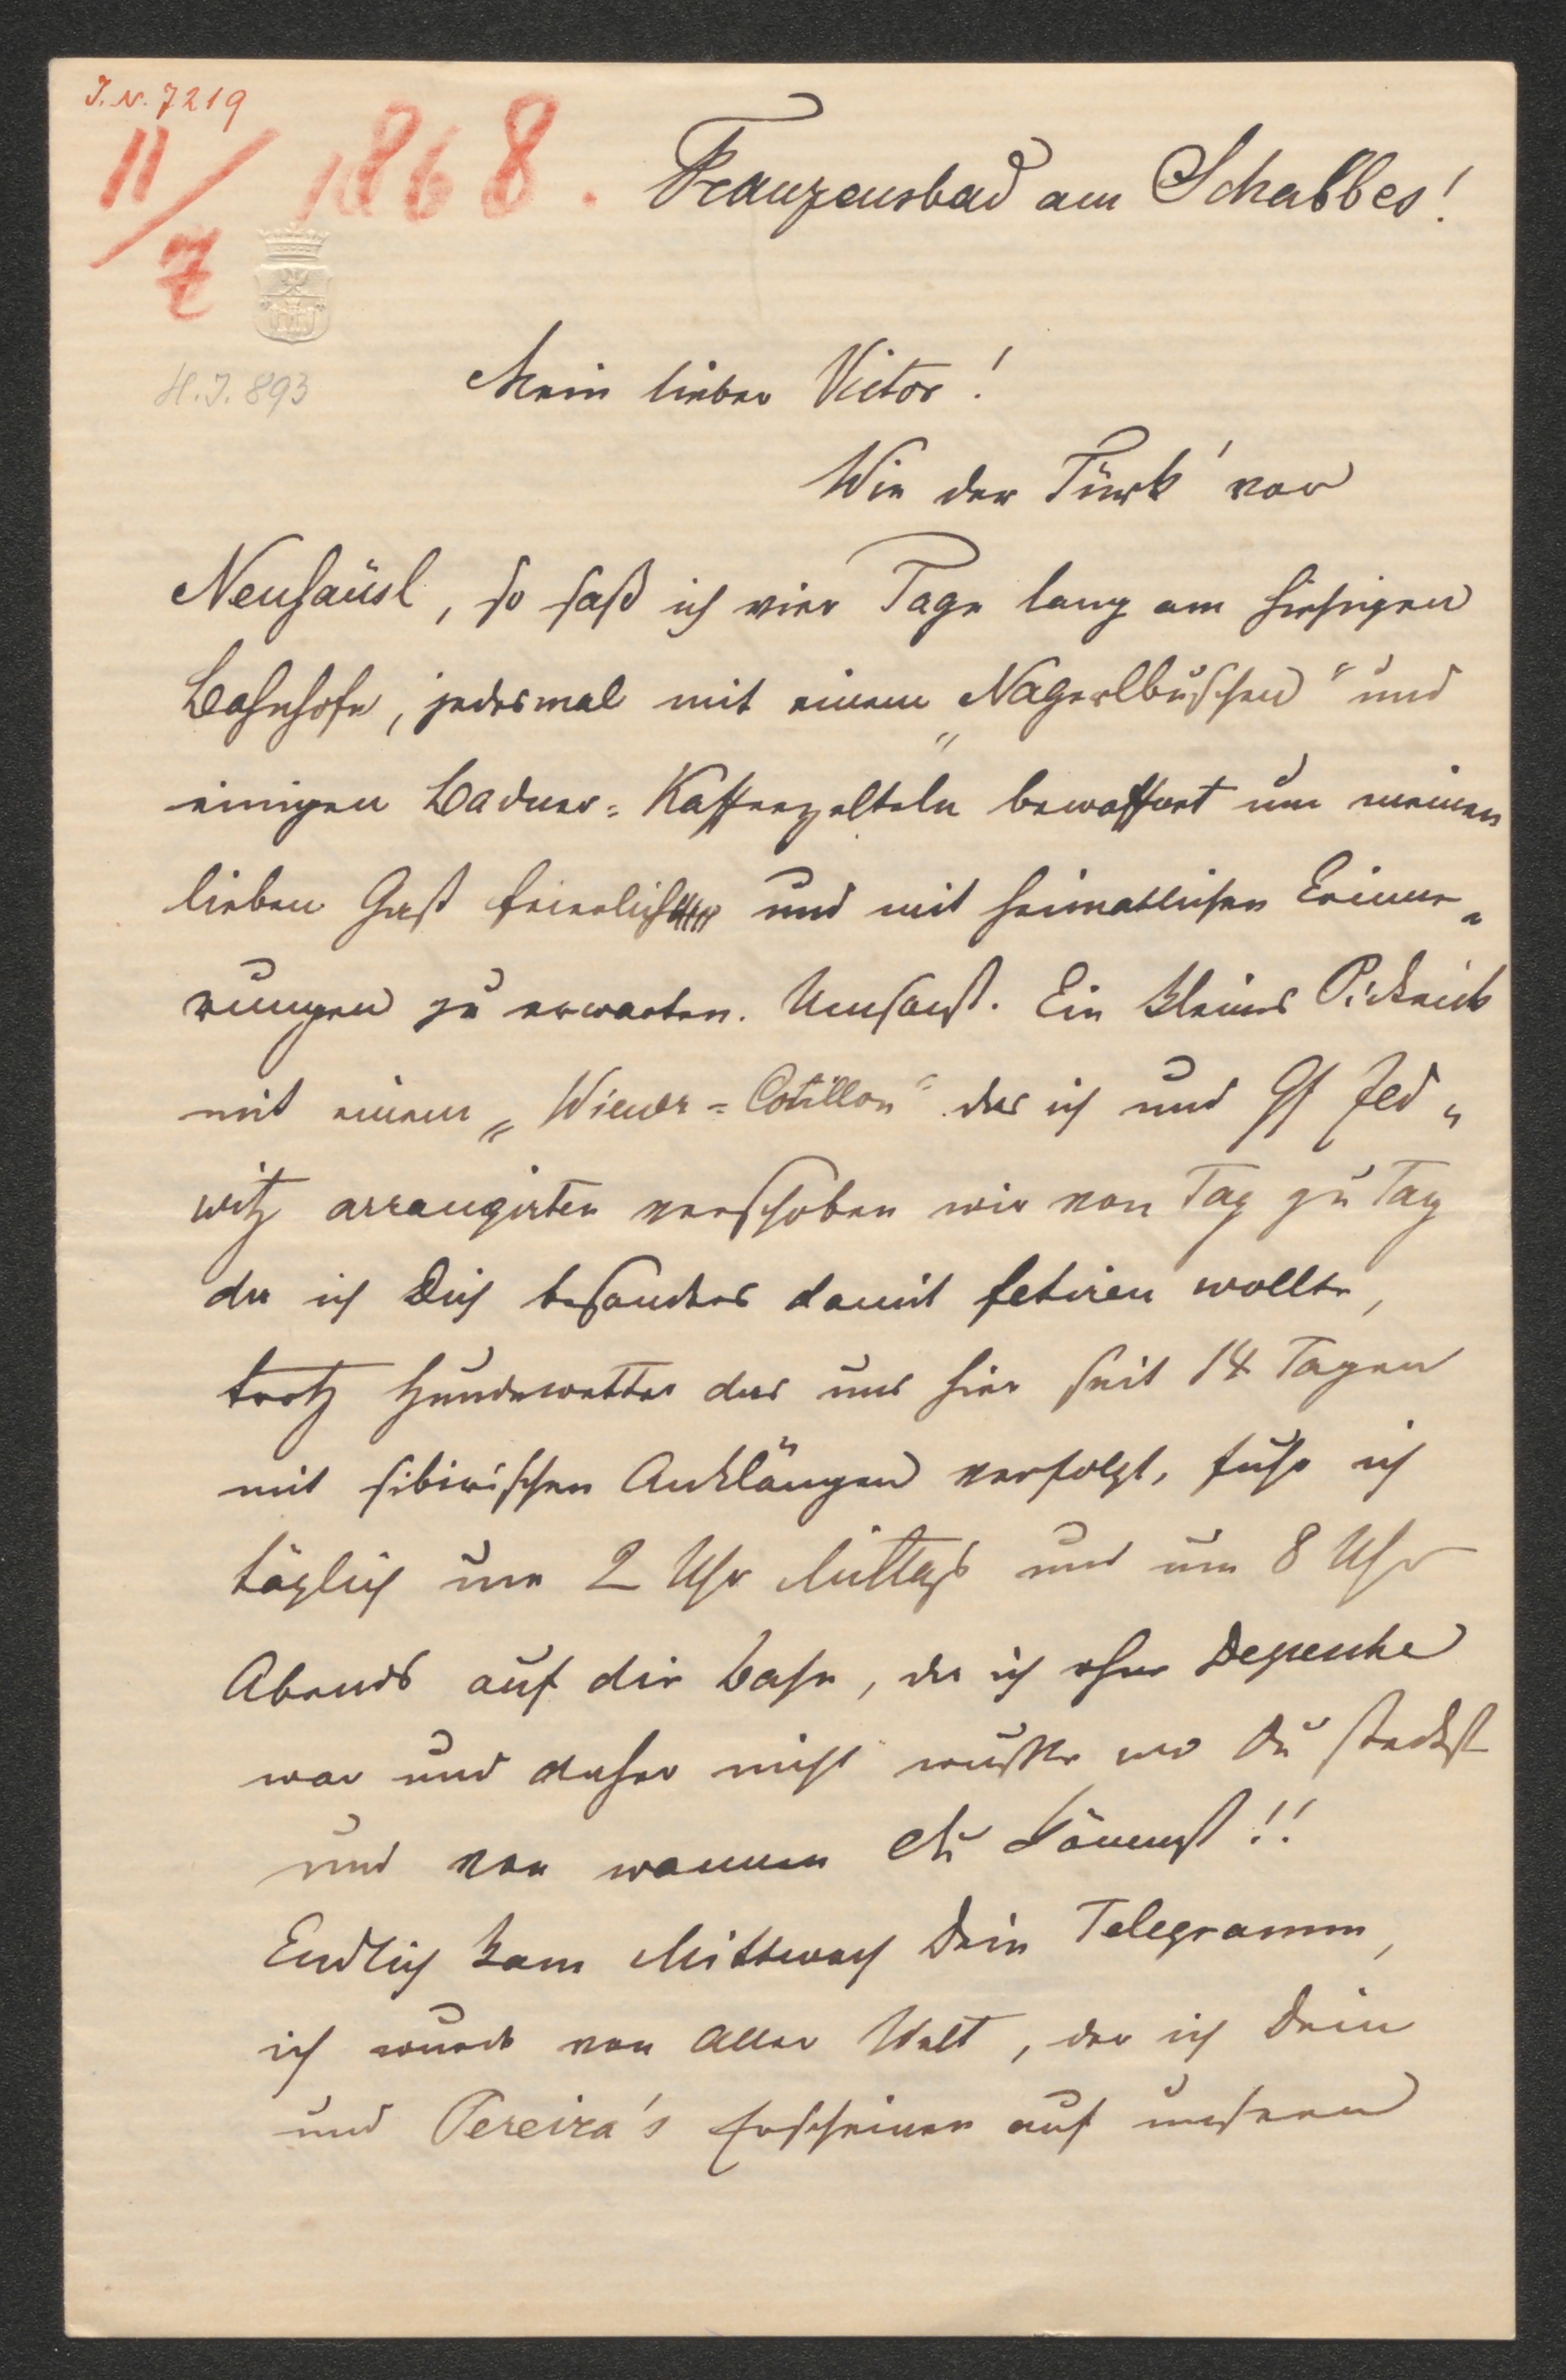 J. N. 7219
11/7 1868.
Franzensbad am Schabbes!
H. J. 893
Mein lieber Victor!
Wie der Türk' vor
Neuhäusl, so saß ich vier Tage lang am hiesigen
Bahnhofe, jedesmal mit einem „Nagerlbuschen" und
einigen Badner-Kaffeezelteln bewaffnet um meinen
lieben Gast feierlich und mit heimatlichen Erinne-
rungen zu erwarten. Umsonst. Ein kleines Picknick
mit einem „Wiener-Cotillon" das ich und Gf Zed-
witz arrangirten verschoben wir von Tag zu Tag
da ich Dich besonders damit fetiren wollte,
trotz Hundewetter das uns hier seit 14 Tagen
mit sibirischen Anklängen verfolgt, fuhr ich
täglich um 2 Uhr Mittags und um 8 Uhr
Abends auf die Bahn, da ich ohne Depesche
war und daher nicht wußte wo Du steckst
und von wannen Du kömmst!!
Endlich kam Mittwoch Dein Telegramm,
ich wurde von aller Welt, der ich Dein
und Pereira's Erscheinen auf unseren